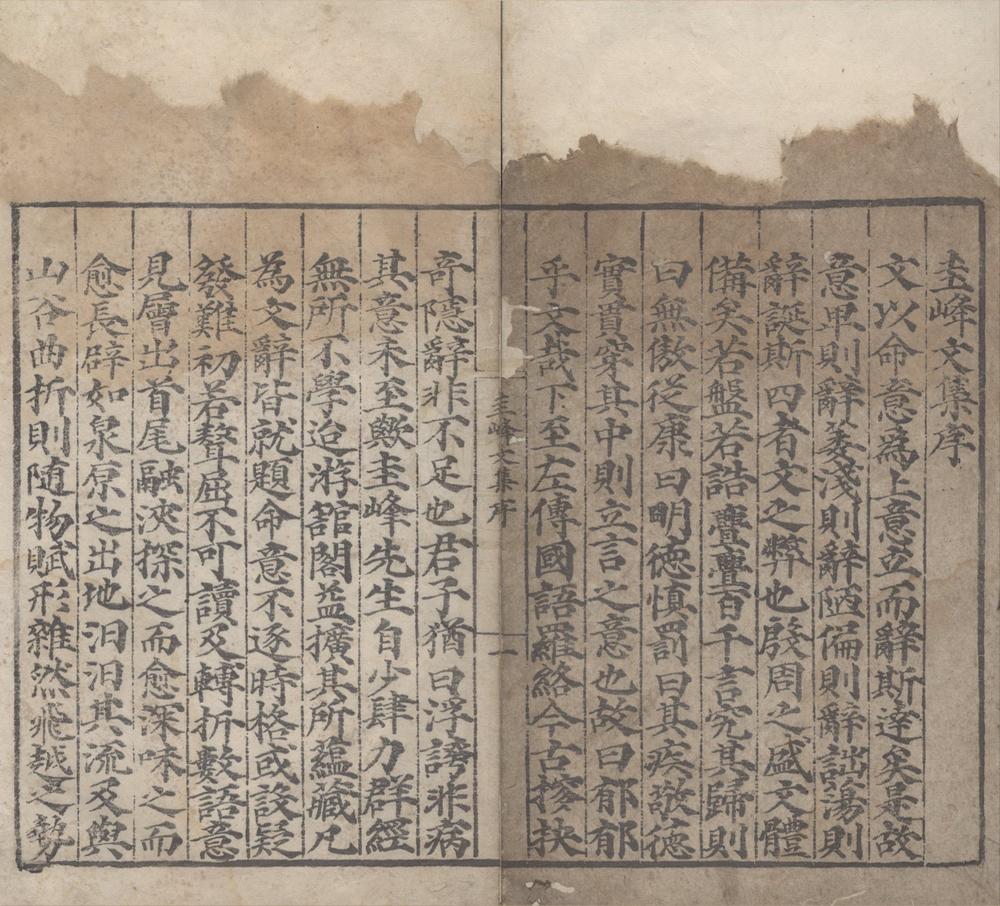 圭峰文集序
文以命意為上意立而辭斯達矣是故
意卑則辭萎淺則辭陋偏則辭詘蕩則
辭誕斯四者文之弊也殷周之盛文體
備矣若盤若誥亹亹百千言究其歸則
曰無傲從康曰明德慎罰曰其疾敬德
實貫穿其中則立言之意也故曰郁郁
乎文哉下至左傳國語羅絡今古搜抉
圭峰文集序
一
奇隱辭非不足也君子猶曰浮誇非病
其意未至歟圭峰先生自少肆力群經
無所不學迨游舘閣益擴其所蘊藏凡
為文辭皆就題命意不逐時格或設疑
發難初若聱屈不可讀及轉折數語意
見層出首尾融浹探之而愈深味之而
愈長辟如泉原之出地汩汩其流及與
山谷曲折則隨物賦形雜然飛越之勢